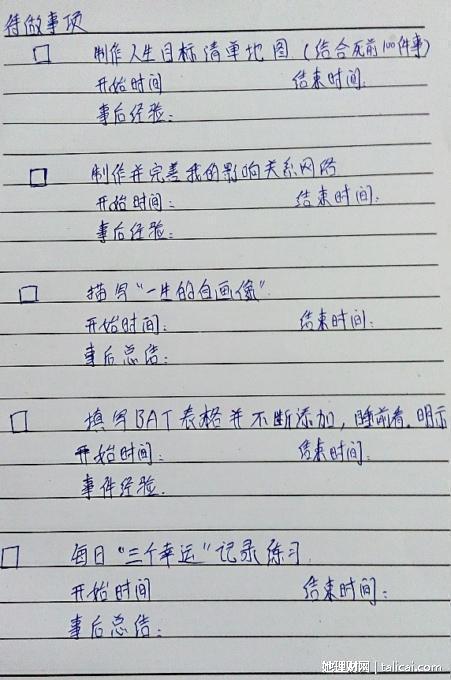 待做事项
制作人生目标清单地图(结合死前100件事)
开始时间 结束时间:
事后经验:
制作并完善我的影响关系网络
开始时间: 结束时间:
事后经验:
描写“一生的自画像”
开始时间: 结束时间:
事后总结:
填写BAT表格并不断添加,睡前看,明示
开始时间: 结束时间:
事件经验.
每日“三个幸运”记录练习
开始时间 结束时间:
事后总结:
她理财网 | talicai.com